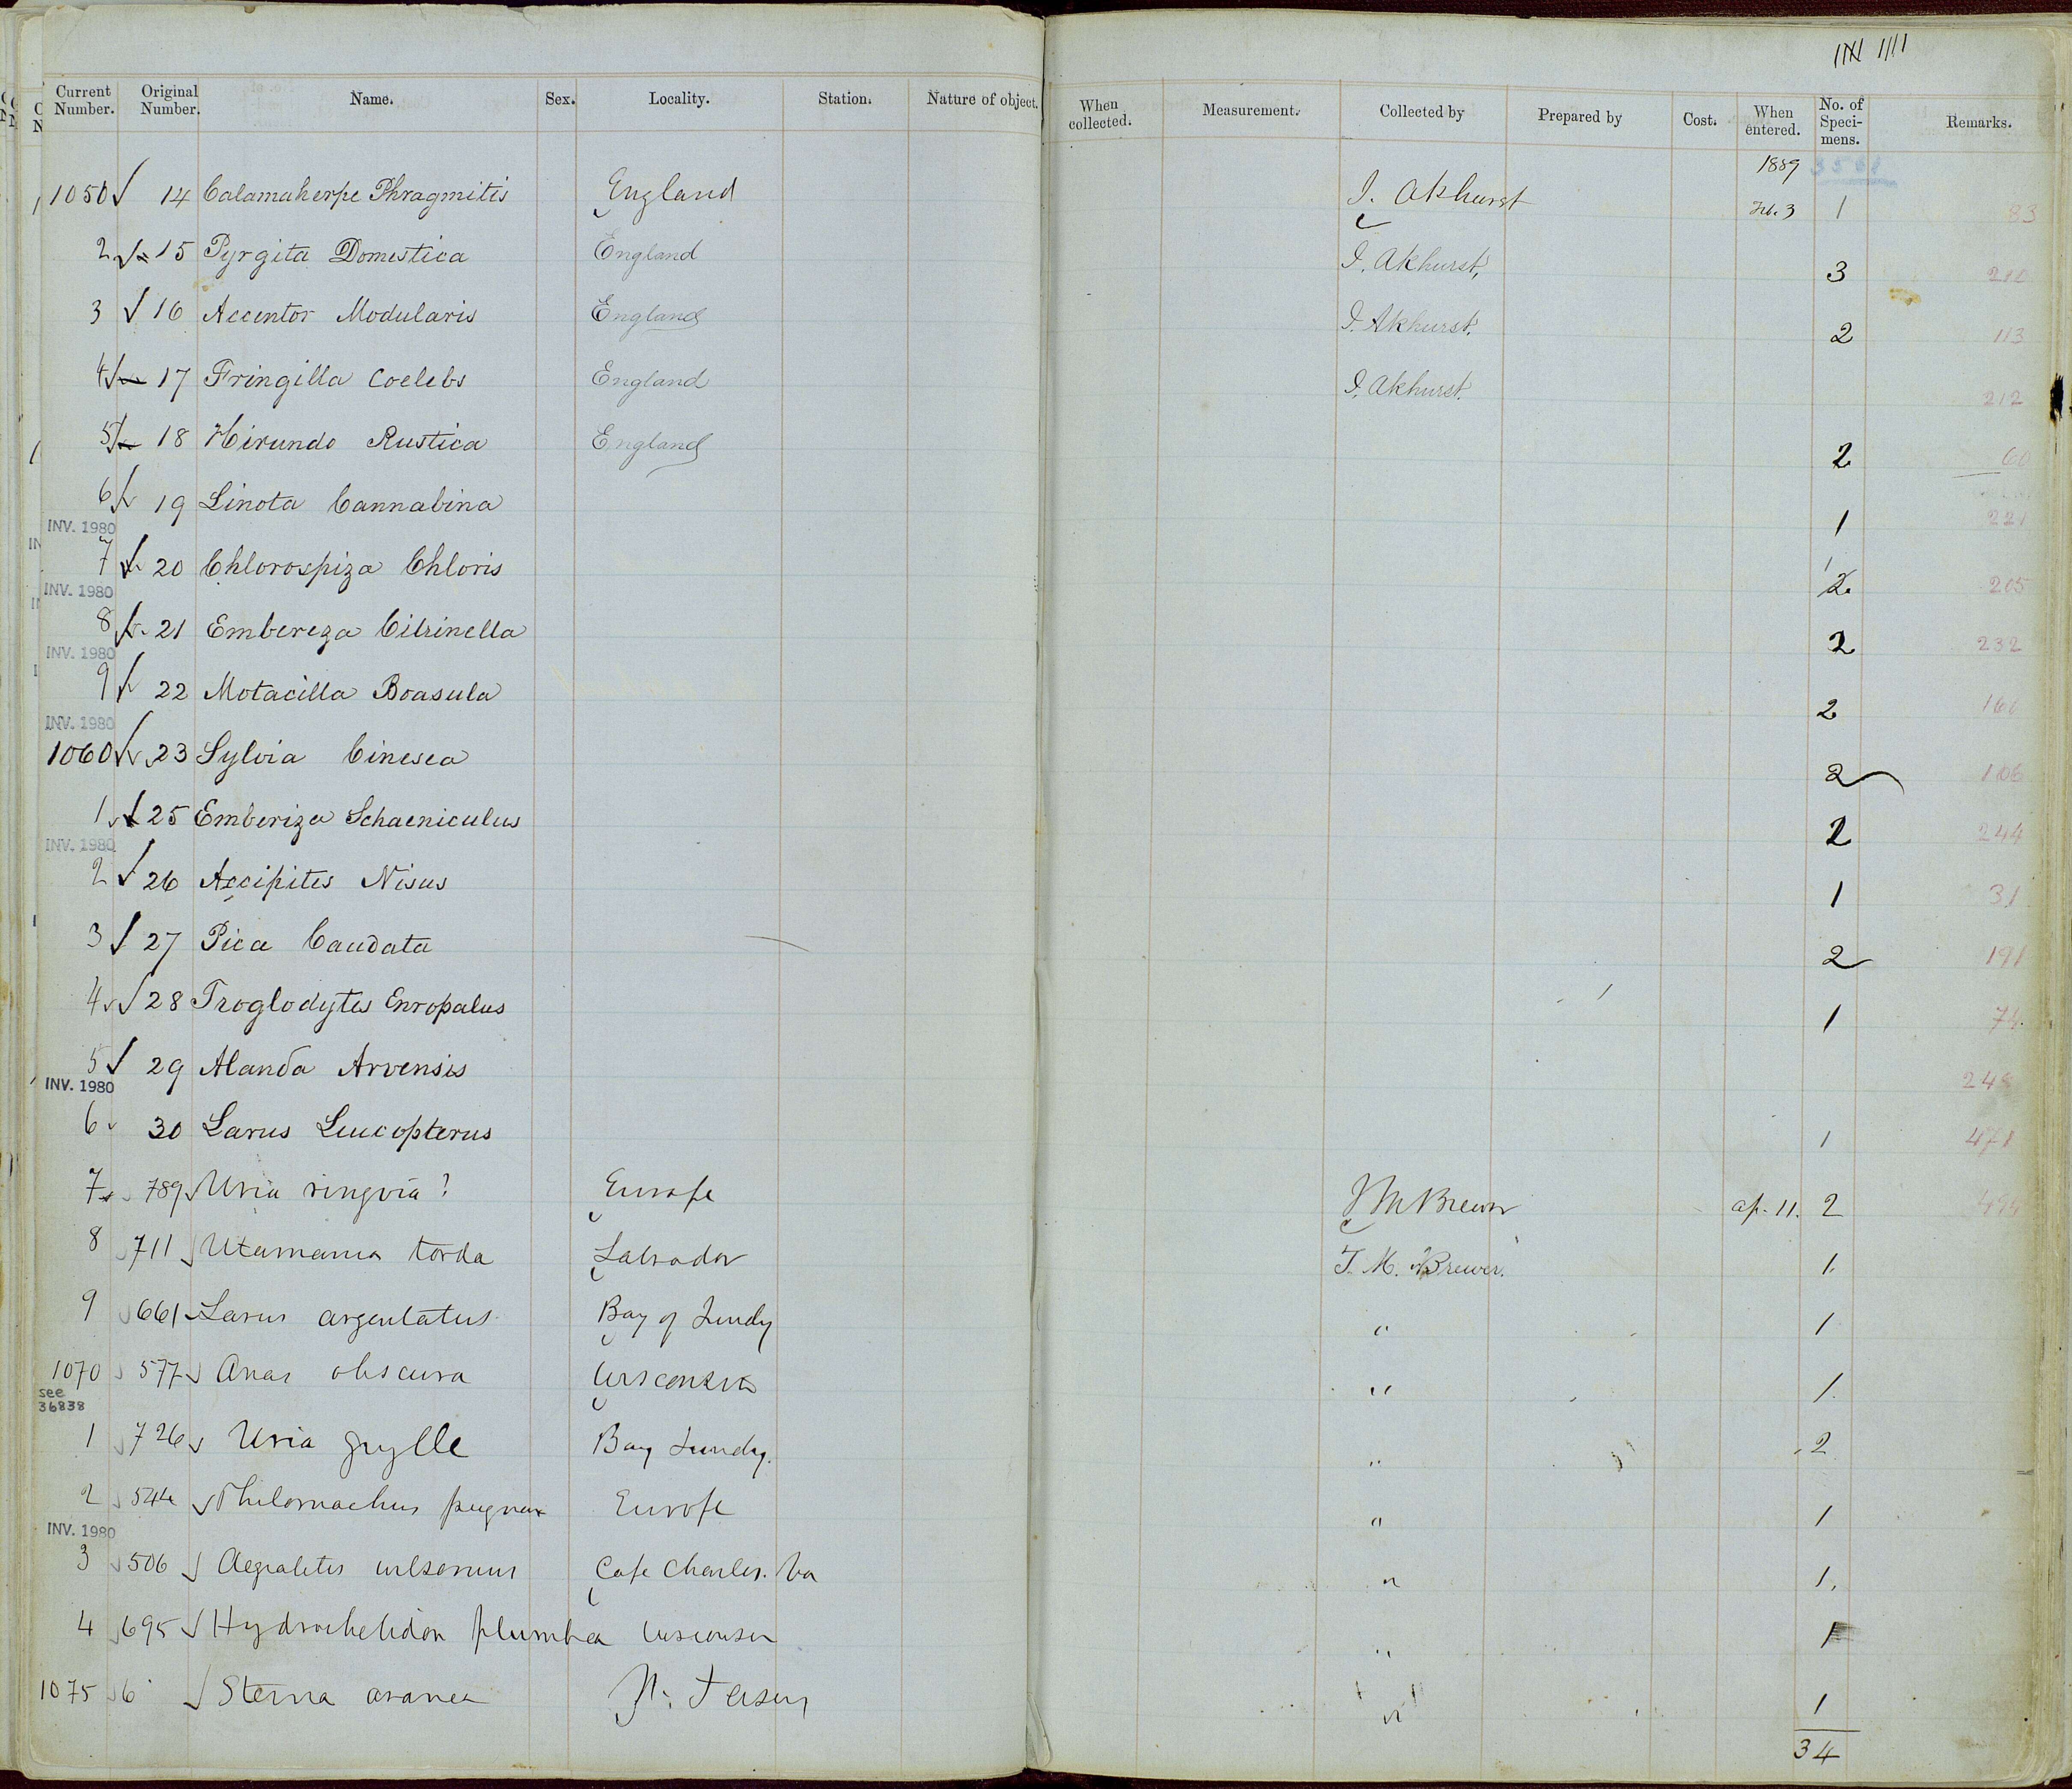 Current Number. Original Number. Name. Sex. Locality. Station. Nature of object. When collected. Measurement. Collected by Prepared by Cost. When entered. No. of Speci-mens. Remarks.
1889
1050 14 Calamaherpe Phragmitis England I. Akhurst Feb. 3 1 83
2 15 Pyrgita Domestica England I. Akhurst, 3 210
3 16 Accentor Modularis England I. Akhurst. 2 113
4 17 Fringilla Coelebs England I. Akhurst. 212
5 18 Hirundo Rustica England 2 60
6 19 Linota Cannabina 1 221
INV. 1980
7 20 Chlorospiza Chloris 1 2 205
INV. 1980
8 21 Embereza Citrinella 2 232
INV. 1980
9 22 Motacilla Boasula 2 160
INV. 1980
1060 23 Sylvia Cinesea 2 106
1 25 Emberiza Schaeniculus 2 244
INV. 1980
2 26 Accipites Nisus 1 31
3 27 Pica Caudata 2 191
4 28 Troglodytes Enropalus 1 74
5 29 Alanda Arvensis 248
INV. 1980
6 30 Larus Leucopterus 1 471
7 789 Uria ringvia? Europe T M Brewer ap. 11. 2
8 711 Utamania torda Labrador T. M. Brewer. 1
9 661 Larus argentatus Bay of Fundy " 1
1070 577 Anas obscura Wisconsin " 1
see
36838
1 726 Uria grylle Bay Fundy. " 2
2 544 Philomachus pugnax Europe " 1
INV. 1980
3 506 Aegialetis wilsonius Cape Charles. Va " 1.
4 695 Hydrochelidon plumbea Wisconsin " 1
1075 6 Sterna aranea N. Jersey " 1
34